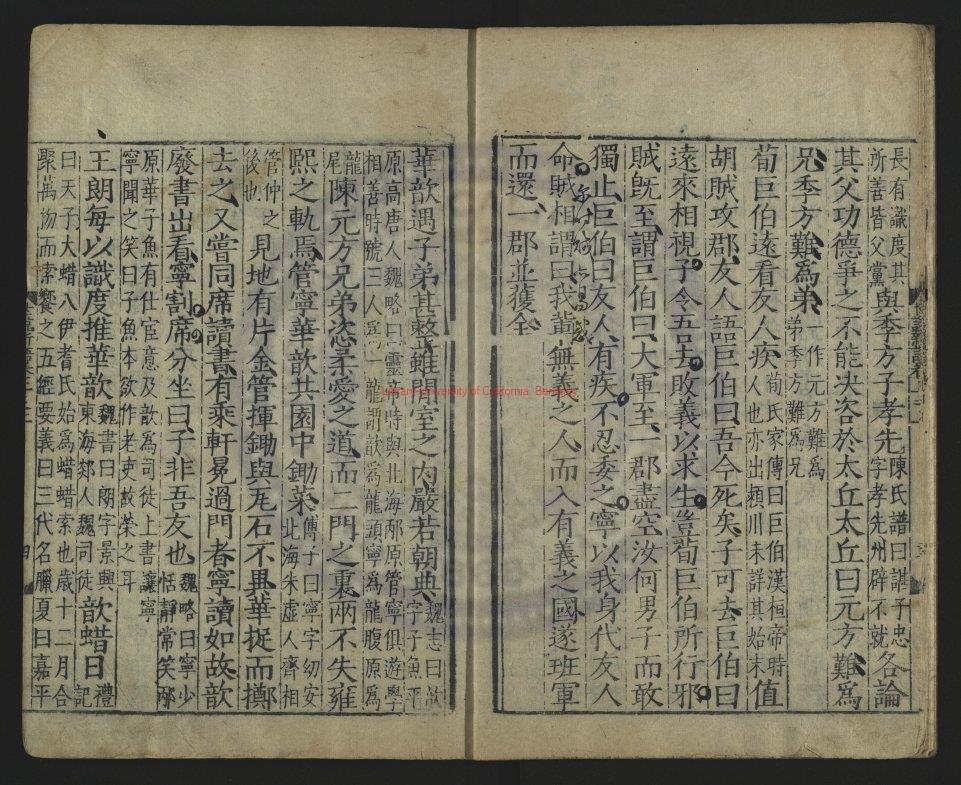 長有識度其
所善皆父黨
與季方子孝先
陳氏譜曰諶子忠
字孝先州辟不就
各論
其父功德爭之不能决咨於太丘太丘曰元方難爲
兄季方難爲弟
一作元方難爲
弟季方難爲兄
荀巨伯遠看友人疾
荀氏家傳曰巨伯漢桓帝時
人也亦出潁川未詳其始末
值
胡賊攻郡友人語巨伯曰吾今死矣子可去巨伯曰
遠來相視子令吾去敗義以求生豈荀巨伯所行邪
賊旣至謂巨伯曰大軍至一郡盡空汝何男子而敢
獨止巨伯曰友人有疾不忍委之寧以我身代友人
命賊相謂曰我輩無義之人而入有義之國遂班軍
而還一郡並獲全
華歆遇子弟甚整雖閒室之内嚴若朝典
魏志曰歆
字子魚平
原高唐人魏略曰靈帝時與北海邴原管寧俱遊學
相善時號三人爲一龍謂歆爲龍頭寧爲龍腹原爲
龍
尾
陳元方兄弟恣柔愛之道而二門之裏兩不失雍
熙之軌焉管寧華歆共園中鋤菜
傅子曰寧字幼安
北海朱虛人齊相
管仲之
後也
見地有片金管揮鋤與瓦石不異華捉而擲
去之又嘗同席讀書有乘軒冕過門者寧讀如故歆
廢書出看寧割席分坐曰子非吾友也
魏略曰寧少
恬靜常笑邴
原華子魚有仕宦意及歆爲司徒上書讓寧
寧聞之笑曰子魚本欲作老吏故榮之耳
王朗每以識度推華歆
魏書曰朗字景興
東海郯人魏司徒
歆蜡日
禮
記
曰天子大蜡八伊耆氏始爲蜡蜡索也歲十二月合
聚萬物而索饗之五經要義曰三代名臘夏曰嘉平